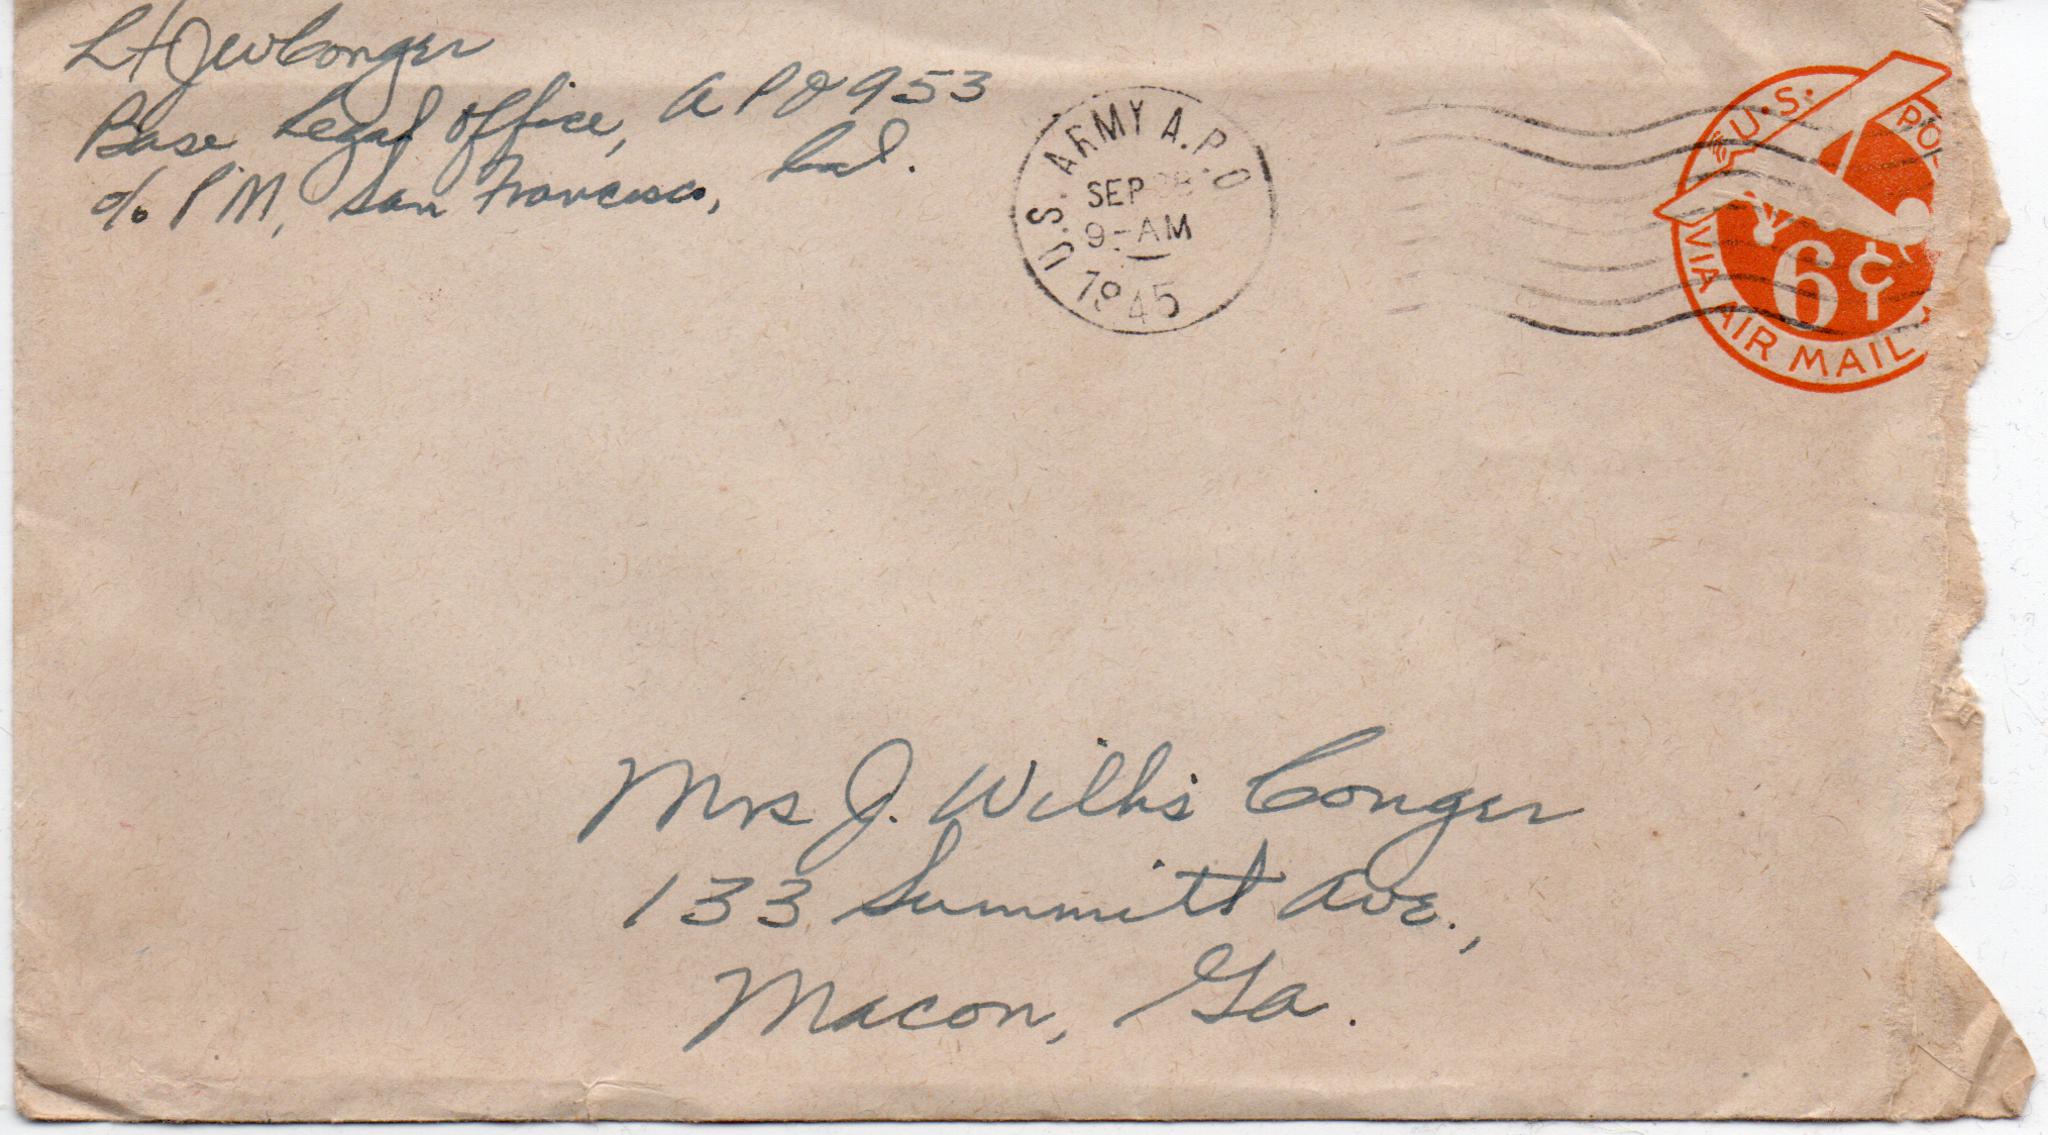 Lt J W Conger
Base Legal Office, APO 953
c/o P M, San Francisco, Cal.
U.S. ARMY A.P.O
SEP 28
9-AM
1945
U.S. PO
6¢
VIA AIR MAIL
Mrs J. Willis Conger
133 Summitt Ave.,
Macon, Ga.